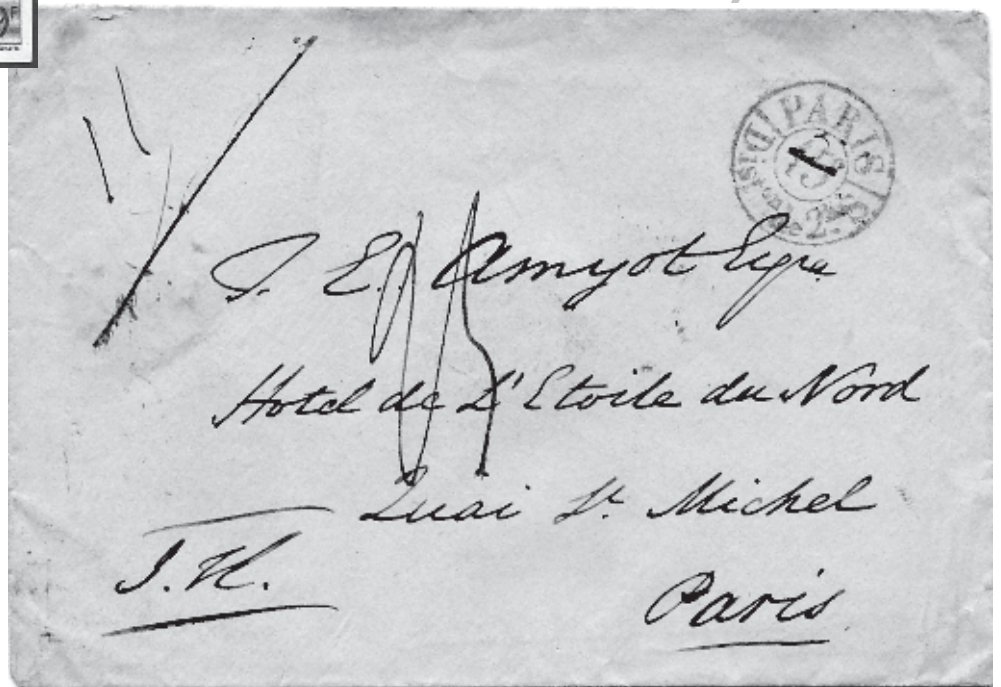 PARIS
Distron de 2me S
T. E. Amyot Esqre
Hotel de L'Etoile du Nord
Quai St. Michel
J. H.
Paris